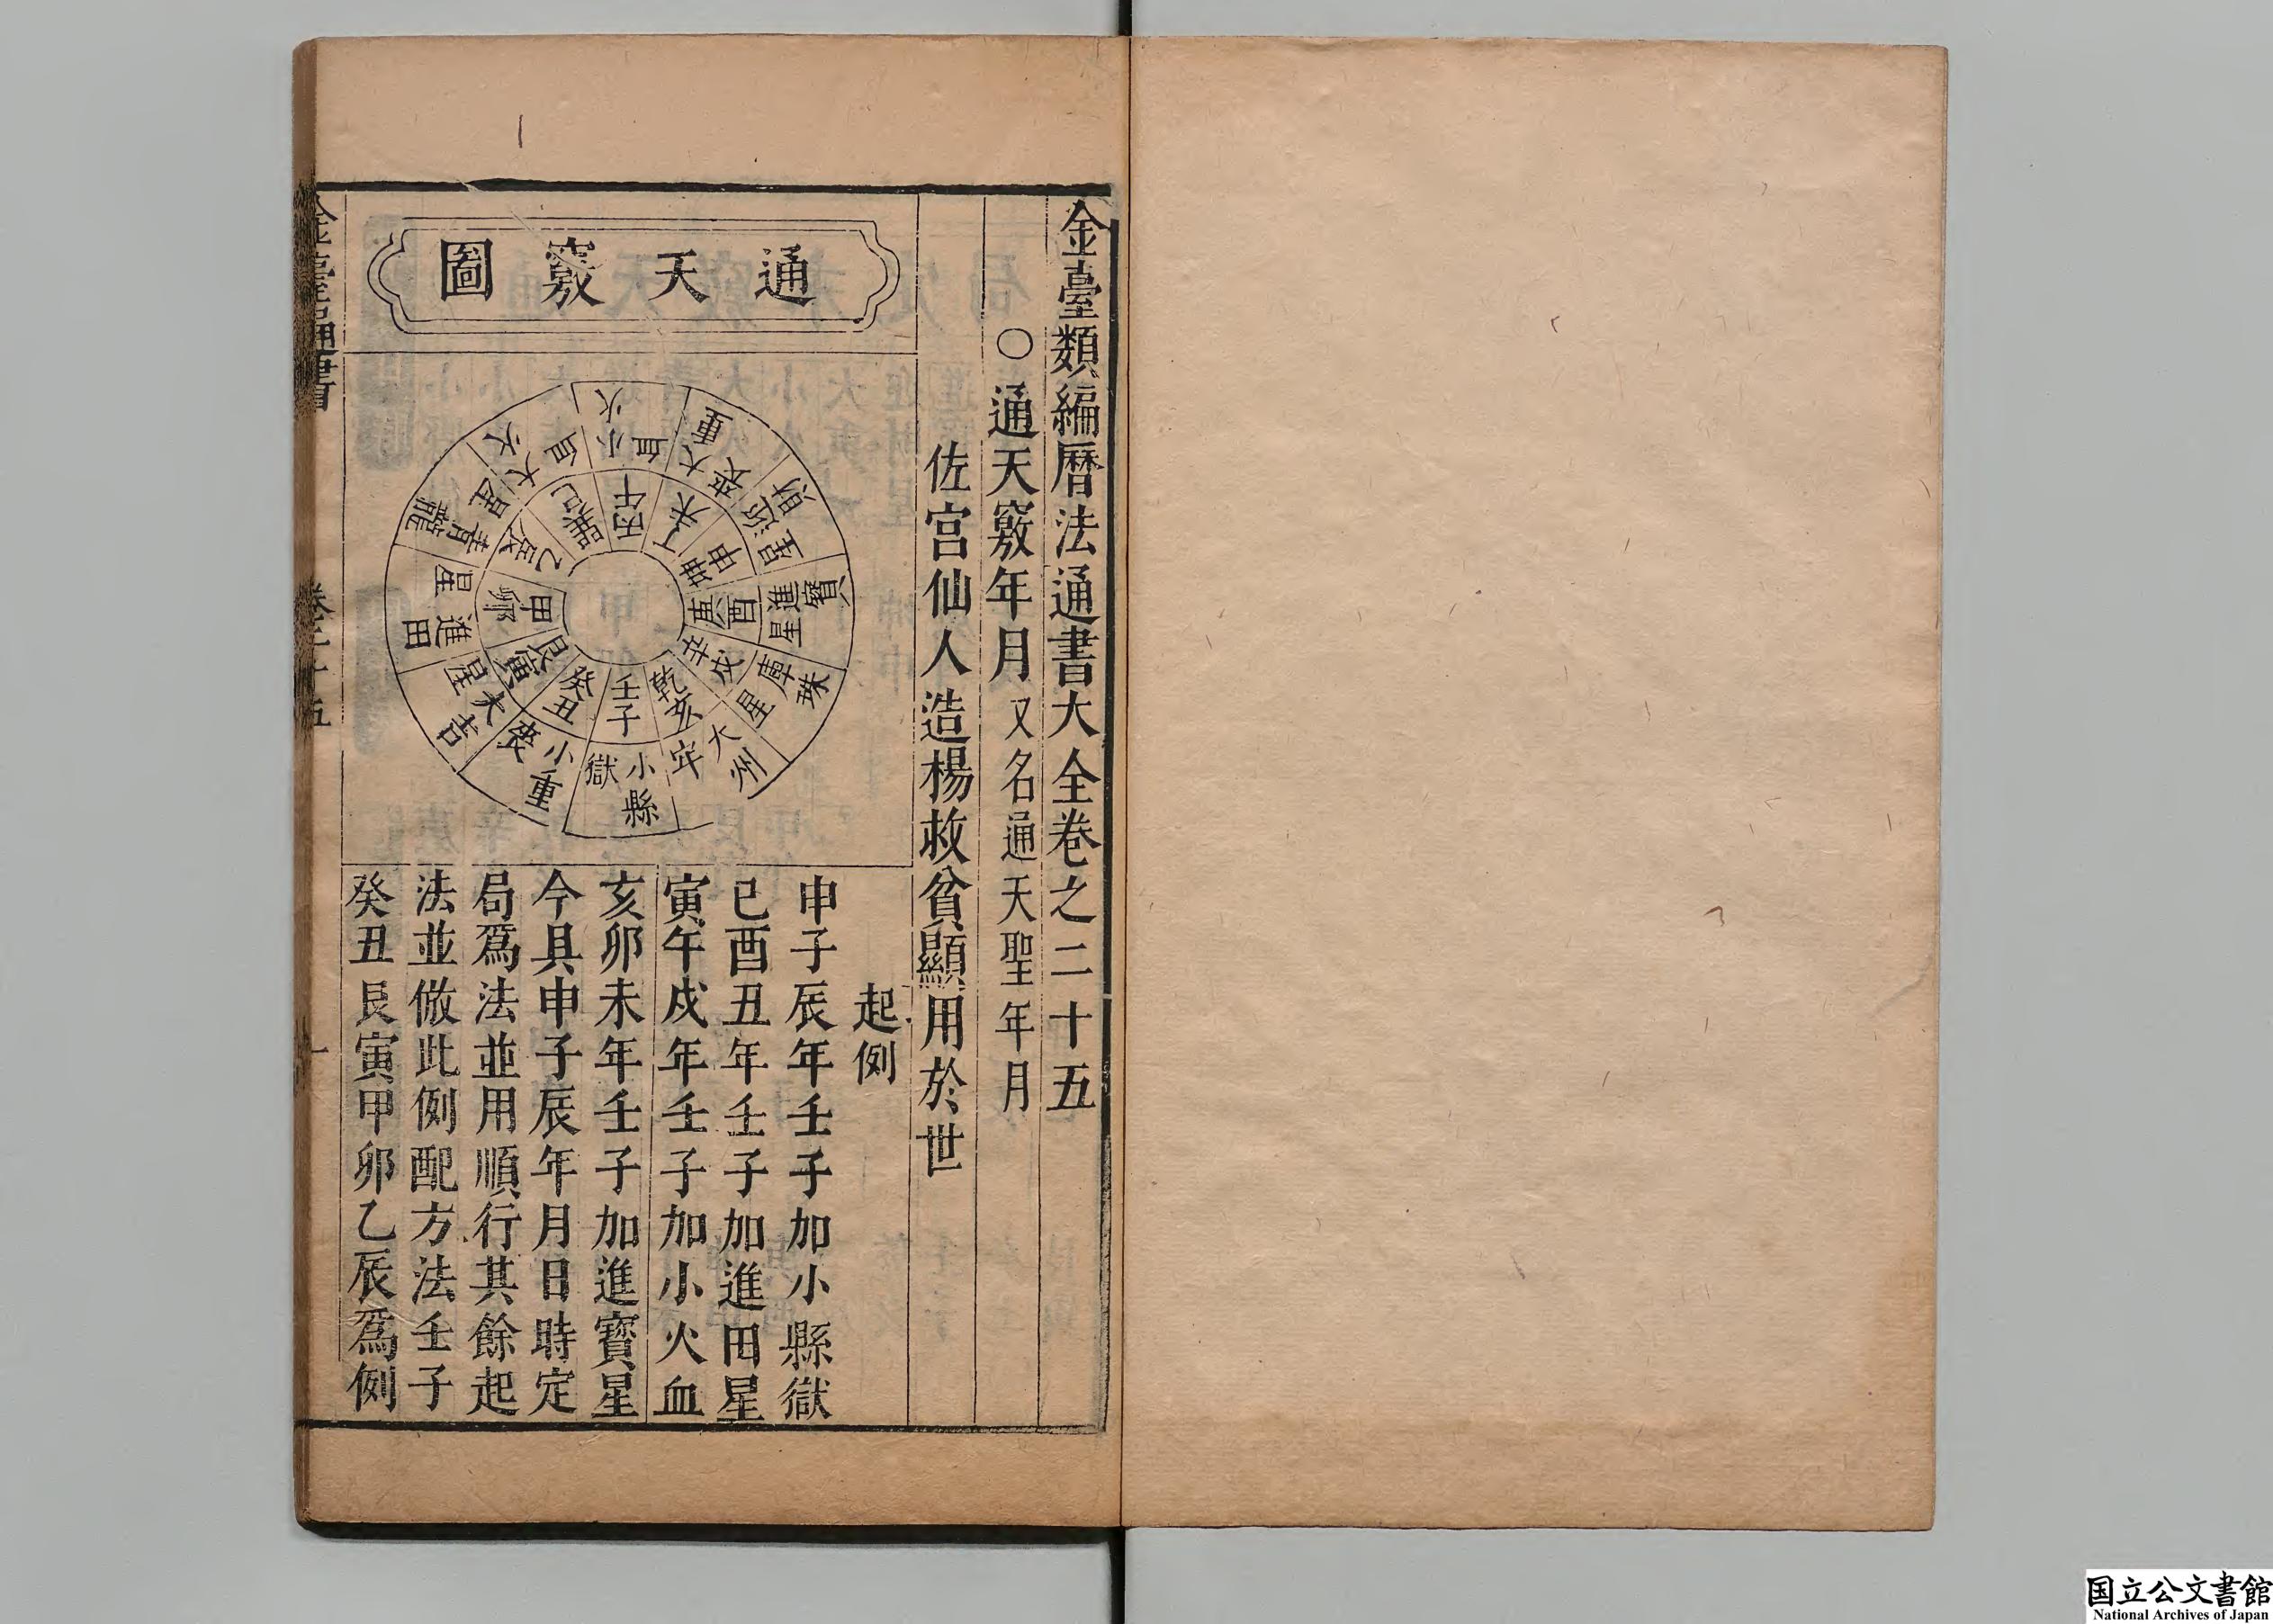 金臺類編曆法通書大全卷之二十五
○通天竅年月又名通天聖年月
佐宫仙人造楊救貧顯用於世
通天竅圖
火小血
重大喪
財迯星
寶進星
珠庫星
州大牢
縣小獄
重小喪
吉大星
田進星
龍青星
火大血
丙午
丁未
坤申
庚酉
辛戌
乾亥
壬子
癸丑
艮寅
甲卯
乙辰
巽巳
起例
申子辰年壬子加小縣獄
巳酉丑年壬子加進田星
寅午戌年壬子加小火血
亥卯未年壬子加進寳星
今具申子辰年月日時定
局爲法並用順行其餘起
法並倣此例配方法壬子
癸丑艮寅甲卯乙辰爲例
金臺通書
卷二十五
一
国立公文書館
National Archives of Japan